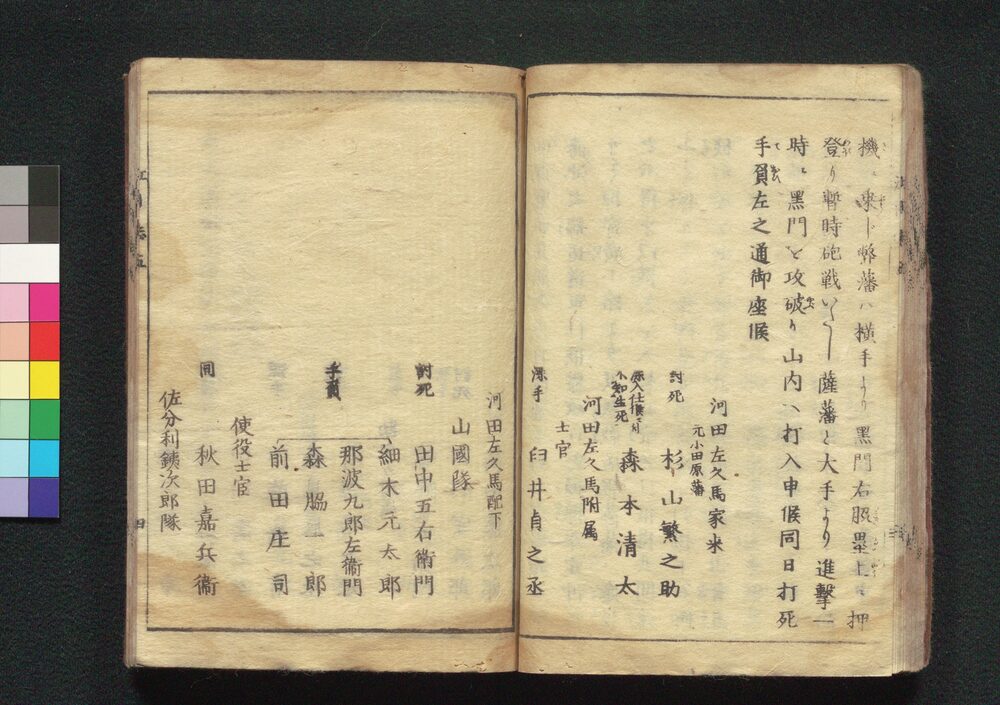 機ニ乗シ弊藩ハ横手ヨリ黒門右脇塁上ニ押
登リ暫時砲戦いたし薩藩と大手より進撃一
時ニ黒門を攻破り山内へ打入申候同日打死
手負左之通御座候
河田左久馬家来
元小田原藩
討死 杉山繁之助
深入仕候ニ付
不知生死 森本清太
河田左久馬附属
士官
深手 臼井貞之丞
河田左久馬配下
山國隊
討死 田中五右衛門
細木元太郎
那波九郎左衛門
手負 森脇一郎
前田庄司
使役士官
同 秋田嘉兵衞
佐分利鉄次郎隊
四